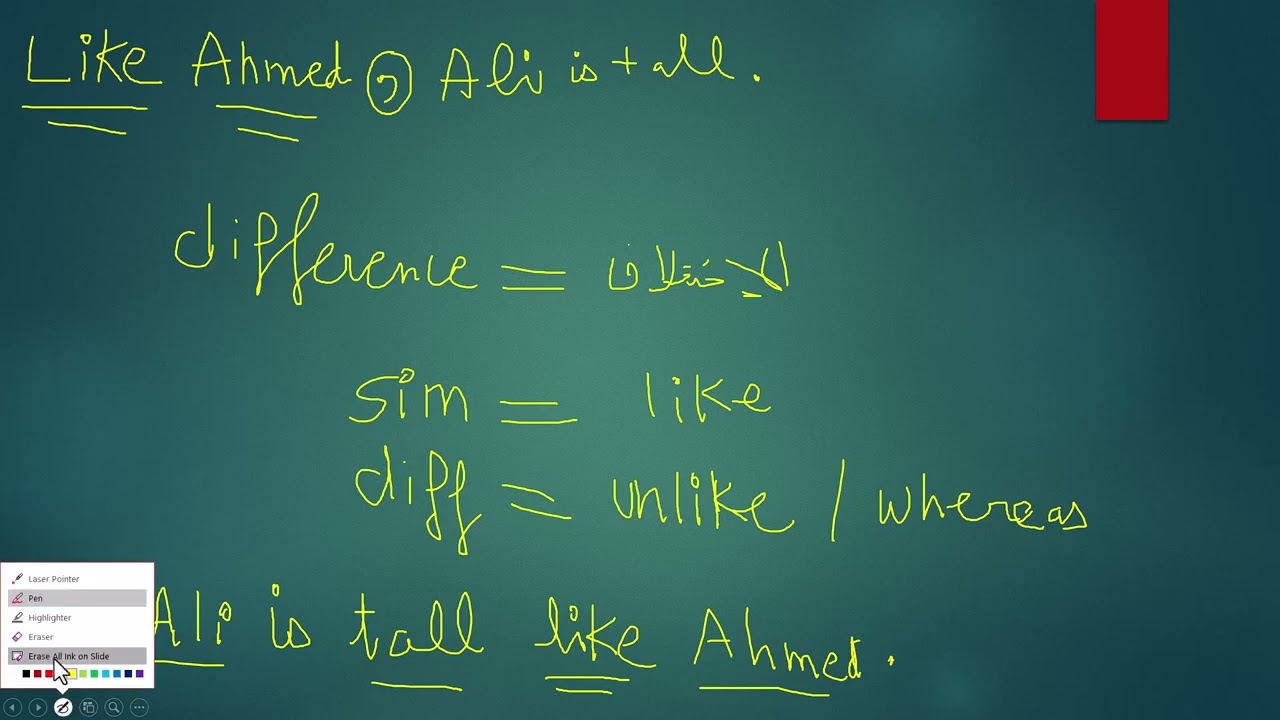 Like Ahmed , Ali is tall.
difference = الاختلاف
sim = like
diff = unlike / whereas
Ali is tall like Ahmed.
Laser Pointer
Pen
Highlighter
Eraser
Erase All Ink on Slide